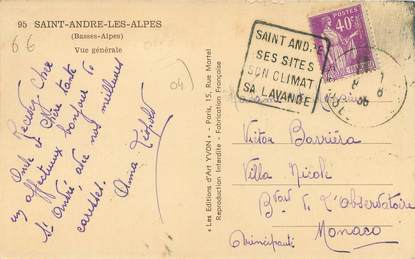 95 SAINT-ANDRE-LES-ALPES
(Basses-Alpes)
Vue générale
66
04)
Recevez Cher
Oncle et Chère tante
un affectueux bonjour de
St André, avec nos meilleures
caresses.
Anna
« Les Editions d'Art YVON » - Paris, 15, Rue Martel
Reproduction Interdite - Fabrication Française
SAINT ANDRE
SES SITES
SON CLIMAT
SA LAVANDE
40c
Victor Barriéra
Villa Nicole
Bvard de L'Observatoire
Monaco
Principauté